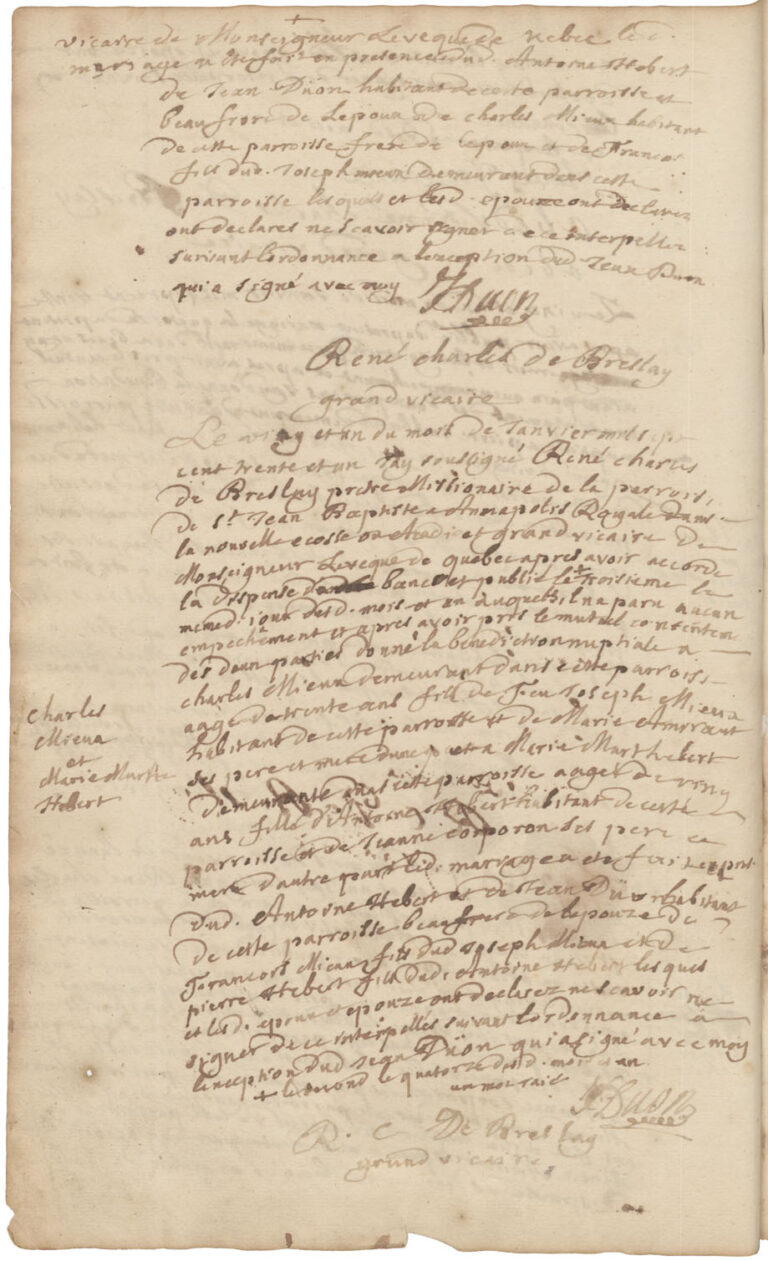 vicaire de Monseigneur Leveque de Kebec led.
mariage a ete fait en presence dud. Antoine Hebert
de Jean Düon habitant de cette parroisse et
beaufrere de lepoux de charles Mieux habitant
de cette parroisse frere de lepoux et de Francois
fils dud. Joseph mieux demeurant dans cette
parroisse lesquels et lesd. epouze ont declarez
ont declares ne scavoir signer de ce interpellez
suivant lordonnance a lexception dud Jean Duon
qui a signé avec moy JDuon
René charles de Breslay
grand vicaire
Le ving et un du mois de Janvier mil sept
cent trente et un Jay sousigné René charles
de Breslay pretre Missionaire de la parroisse
de St. Jean Baptiste a Annapolis Royale dans
la nouvelle ecosse ou Acadie et grand vicaire de
Monseigneur Leveque de quebec apres avoir accordé
la dispense banc et publié le + troisieme le
meme d. jour desd. mois et an auquels il na paru aucun
empechement et apres avoir pris le mutuel consentem
des deux parties donné la benediction nuptiale a
charles Mieux demeurant dans cette parroisse
aagé de trente ans fils de Feu Joseph Mieux
habitant de cette parroisse et de Marie Amirant
ses pere et mere dune part et a Marie Marthebert
demeurante dans cette parroisse aagée de ving
ans fille d'Antoine Hebert habitant de cette
parroisse et de Jeanne corporon ses pere et
mere dautre part led. mariage a ete fait en pres
dud. Antoine Hebert et de Jean Düon habitant
de cette parroisse beaufrere de lepouze de
Francois Mieux fils dud Joseph Mieux et de
pierre Hebert fils dud. Antoine Hebert lesquels
et lesd. epoux et epouze ont declarez ne scavoir
signer de ce interpellés suivant lordonnance a
lexception dud Jean Düon qui a signé avec moy
+ le second le quatorze desd. mois et an
un mot raié JDuon
R. C. De Breslay
grand vicaire
charles
Mieux
et
Marie Marthe
Hebert